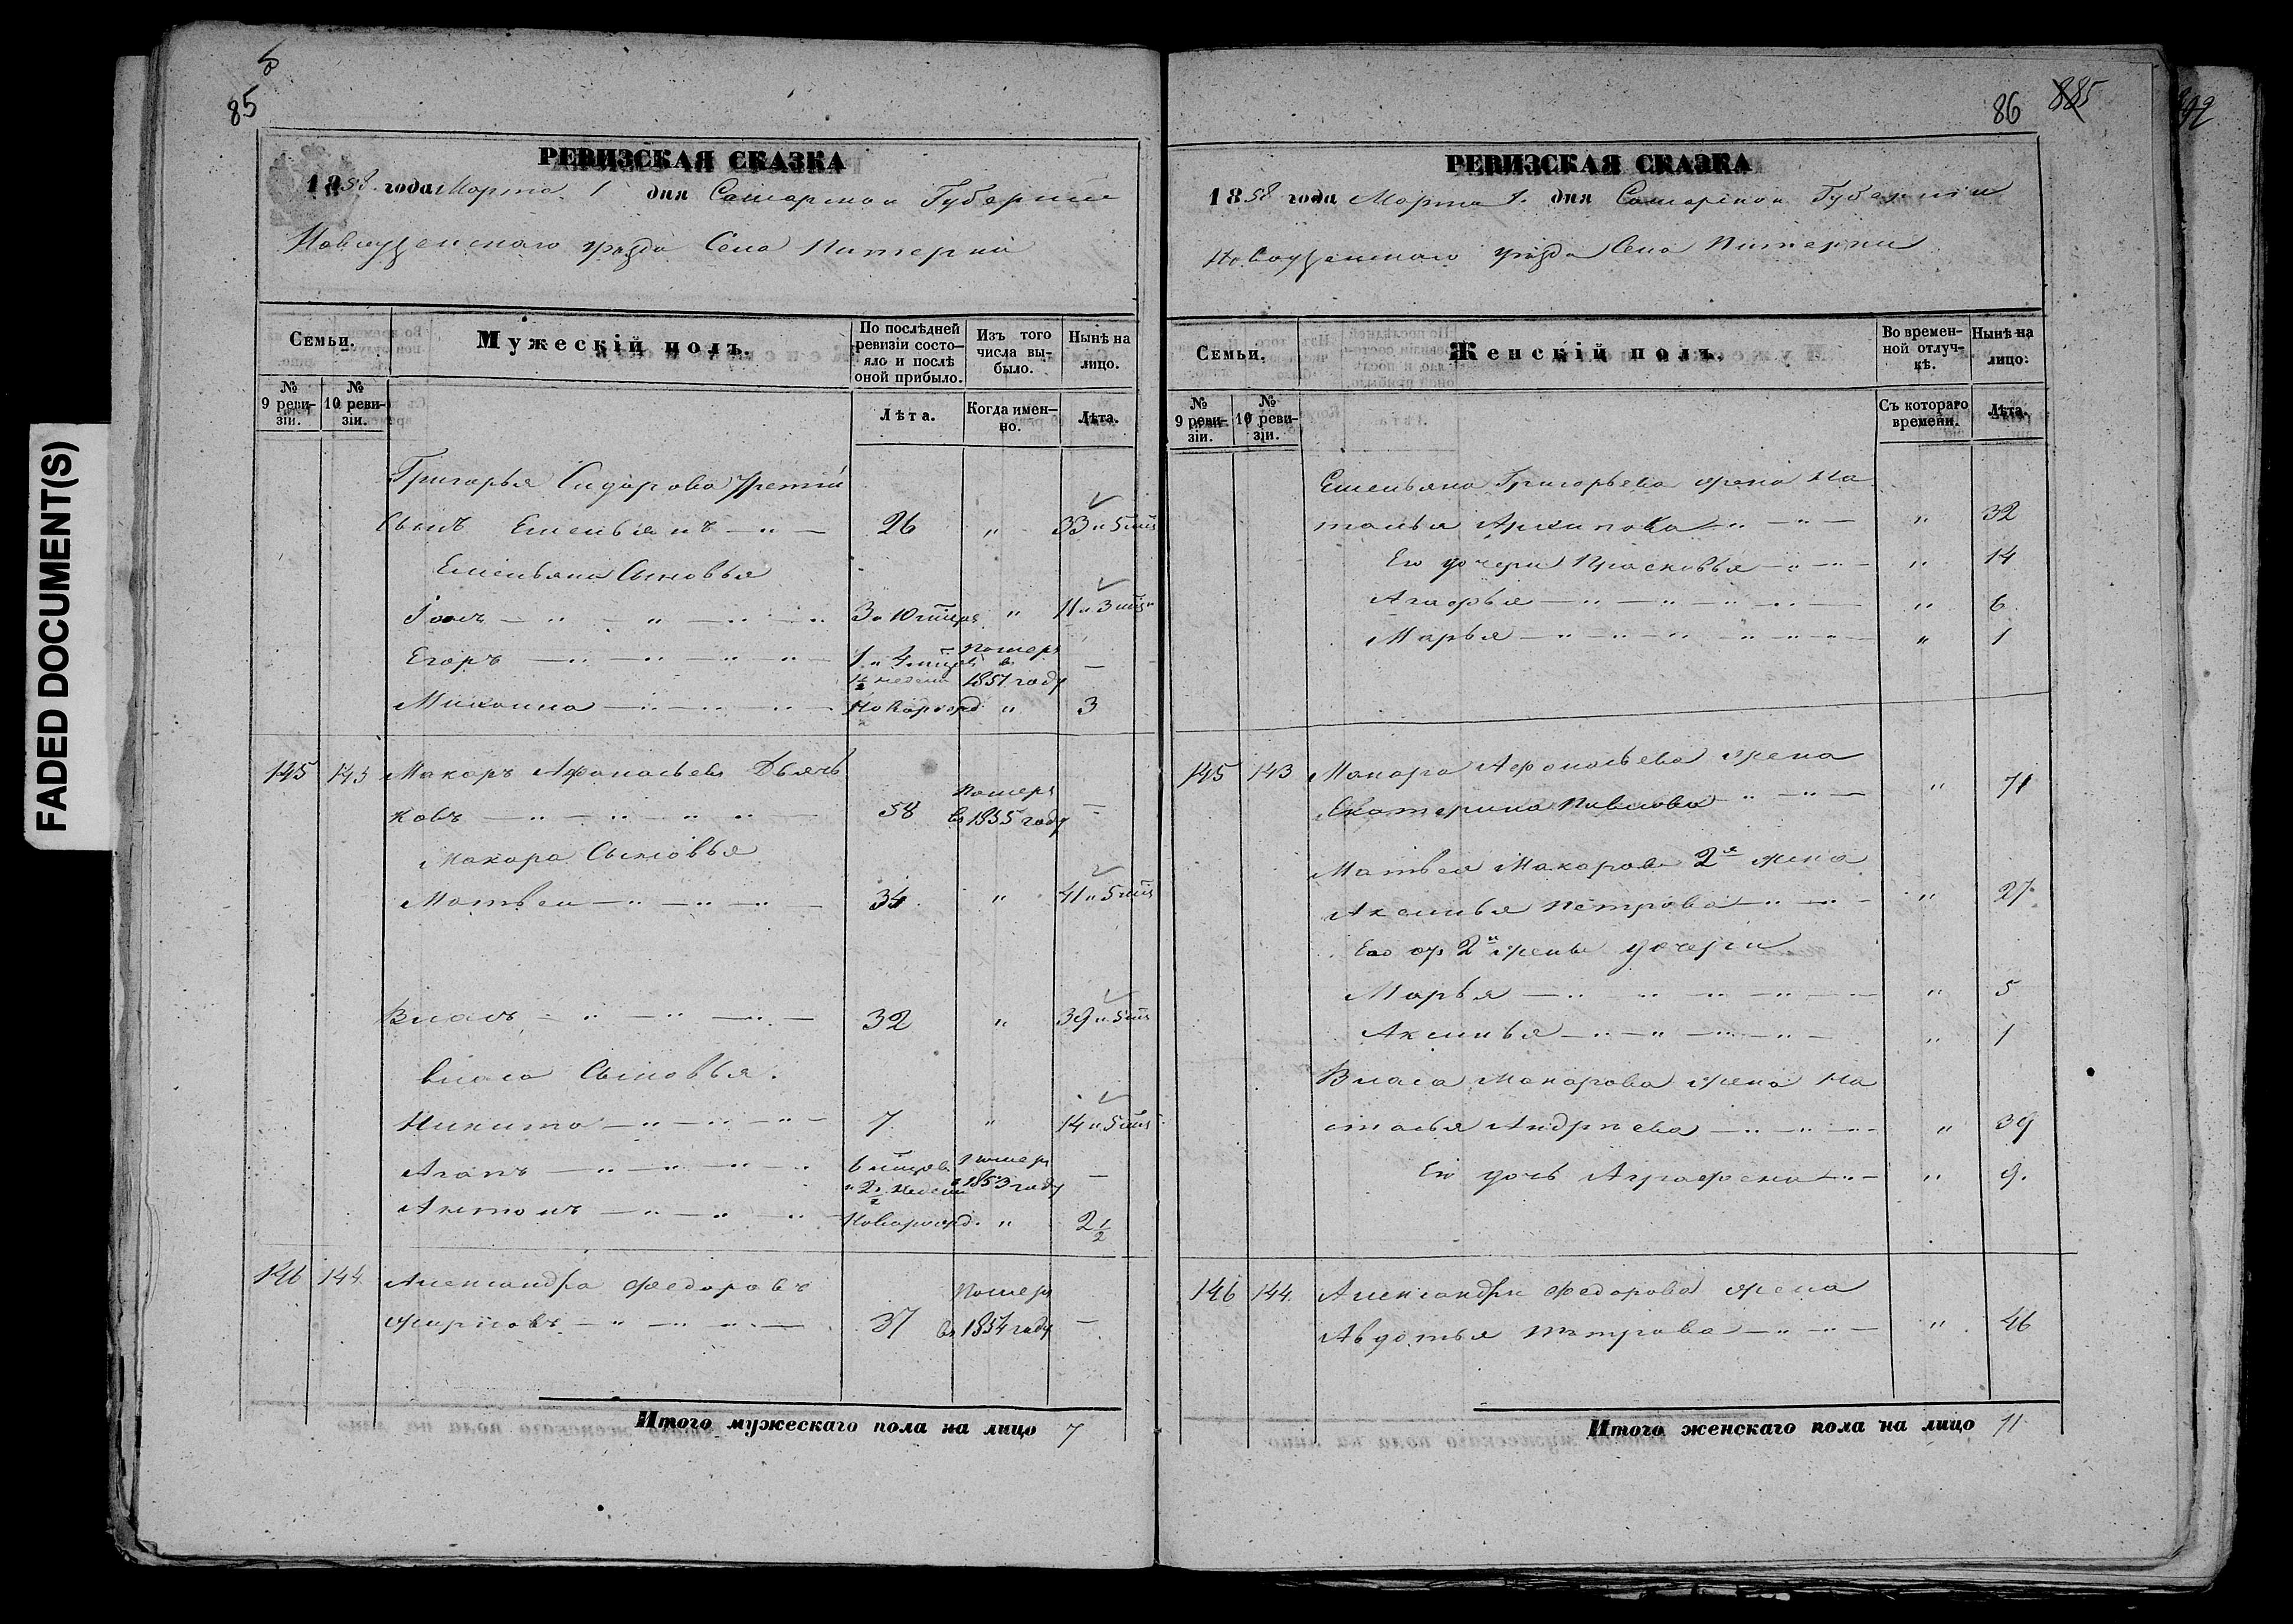 FADED DOCUMENT(S)
85
РЕВИЗСКАЯ СКАЗКА
1858 года Марта 1 дня Самарской Губернии
Новоузенскаго уѣзда Села Питерки
Семьи.
Мужескій полъ.
По послѣдней ревизіи состо-яло и послѣ оной прибыло.
Изъ того числа вы-было.
Нынѣ на лицо.
№ 9 реви-зіи.
№ 10 реви-зіи.
Лѣта.
Когда имен-но.
Лѣта.
Григорья Сидорова третій
сынъ Емельянъ — " — 26 " 33 и 5 мцъ
Емельяна Сыновья
3 и 10 мцевъ " 11 и 3 мцъ
Егоръ — " — " — " " — 1 и 4 мцевъ 1/2 недели Померъ въ 1851 году —
— " — " — " — Новорожд. " 3
145 143 Макаръ Афонасьевъ Дьяч
ковъ — " — " — " " — 58 Померъ въ 1855 году —
Макара Сыновья
Матвеи — " — " — " — 34 " 41 и 5 мцъ
Власъ — " — " — " — 32 " 39 и 5 мцъ
Власа Сыновья.
Никита — " — " — " — 7 " 14 и 5 мцъ
Агапъ — " — " — " — " 6 мцевъ и 2 1/2 недели Померъ в 1853 году —
Антонъ — " — " — " — Новорожд. " 2 1/2
146 144. Александра Федоровъ
37 Померъ въ 1854 году —
Итого мужескаго пола на лицо 7
86 885
РЕВИЗСКАЯ СКАЗКА
1858 года Марта 1. дня Самарской Губернии
Новоузенскаго уѣзда Села Питерки
Семьи.
Женскій полъ.
Во времен-ной отлуч-кѣ.
Нынѣ на лицо.
№ 9 реви-зіи.
№ 10 реви-зіи.
Съ котораго времени.
Лѣта.
Емельяна Григорьева жена На
талья Архипова — " — " — " 32
Его дочери Прасковья — " — " — " 14
Агафья — " — " — " — " 6
Марья — " — " — " — " — " — " 1
145 143 Макара Афонасьева жена
Екатерина Павлова — " — " — " 71
Матвея Макарова 2я жена
Аксинья Петрова — " — " — " 27
Его отъ 2й жены дочери
Марья — " — " — " — " — " 5
Аксинья — " — " — " — " — " 1
Власа Макарова жена На
талья Андреева — " — " — " 39
Его дочь Аграфена — " — " 9.
146 144. Александры Федорова жена
Авдотья Петрова — " — " — " 46
Итого женскаго пола на лицо 11